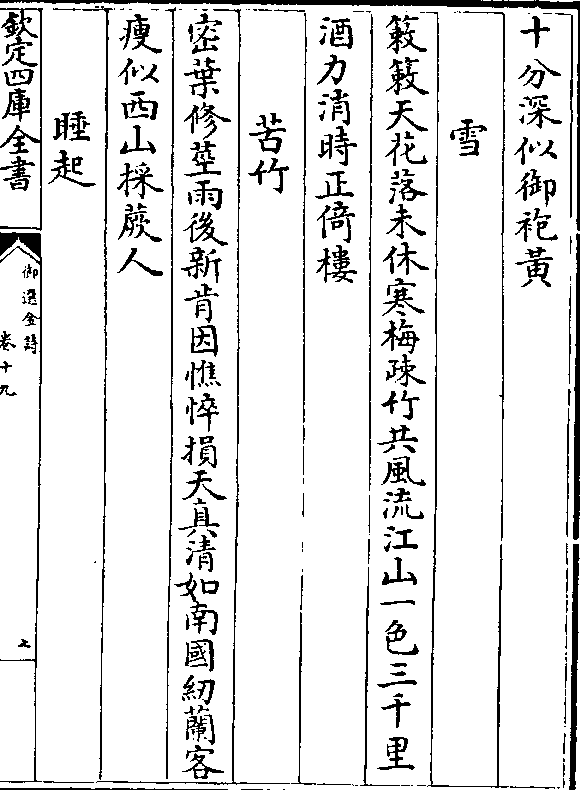 十分深似御袍黃
雪
簌簌天花落未休寒梅疎竹共風流江山一色三千里
酒力消時正倚樓
苦竹
密葉修莖雨後新肯因憔悴損天真清如南國紉蘭客
瘦似西山採蕨人
睡起
欽定四庫全書
御選金詩
卷十九